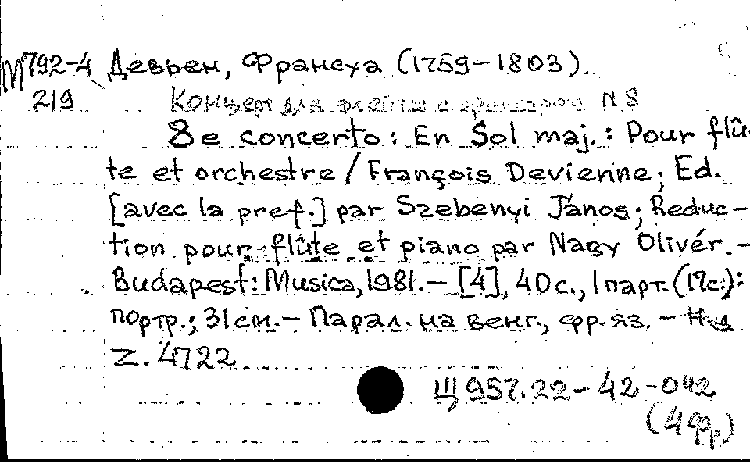 М792-4 Девьен, Франсуа (1759-1803)
219 Концерт для флейты с оркестром N 8
8e concerto: En Sol maj.: Pour flû-
te et orchestre / François Devienne; Ed.
[avec la pref.] par Szebenyi János; Reduc-
tion pour flûte et piano par Nagy Olivér.-
Budapest: Musica, 1981.- [4], 40 с., 1 парт. (17с.):
портр.; 31 см.- Парал. на венг., фр. яз. - Н.д.
Z. 4722
Щ 957.22-42-042
(4Фр.)